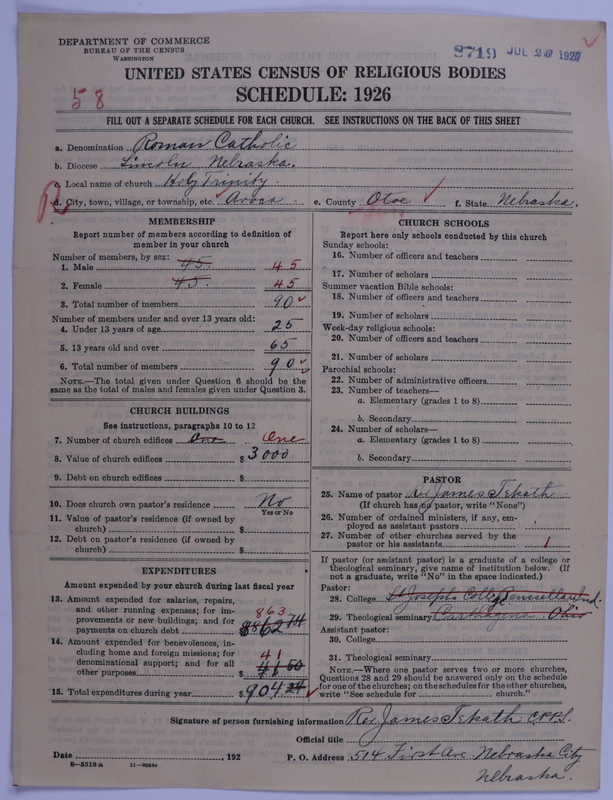 DEPARTMENT OF COMMERCE
BUREAU OF THE CENSUS
WASHINGTON
8719 JUL 20 1927
UNITED STATES CENSUS OF RELIGIOUS BODIES
58
SCHEDULE: 1926
FILL OUT A SEPARATE SCHEDULE FOR EACH CHURCH. SEE INSTRUCTIONS ON THE BACK OF THIS SHEET
a. Denomination Roman Catholic
b. Diocese Lincoln Nebraska.
c. Local name of church Holy Trinity
d. City, town, village, or township, etc. Avoca e. County Otoe f. State Nebraska.
MEMBERSHIP
Report number of members according to definition of
member in your church
Number of members, by sex:
1. Male 45. 45
2. Female 45. 45
3. Total number of members 90
Number of members under and over 13 years old:
4. Under 13 years of age 25
5. 13 years old and over 65
6. Total number of members 90
NOTE.—The total given under Question 6 should be the
same as the total of males and females given under Question 3.
CHURCH BUILDINGS
See instructions, paragraphs 10 to 12
7. Number of church edifices One One
8. Value of church edifices $3000
9. Debt on church edifices $
10. Does church own pastor's residence No
Yes or No
11. Value of pastor's residence (if owned by
church) $
12. Debt on pastor's residence (if owned by
church) $
EXPENDITURES
Amount expended by your church during last fiscal year
13. Amount expended for salaries, repairs,
and other running expenses; for im-
provements or new buildings; and for
payments on church debt 863 $862 74
14. Amount expended for benevolences, in-
cluding home and foreign missions; for
denominational support; and for all
other purposes 41 $41 50
15. Total expenditures during year $904 24
CHURCH SCHOOLS
Report here only schools conducted by this church
Sunday schools:
16. Number of officers and teachers
17. Number of scholars
Summer vacation Bible schools:
18. Number of officers and teachers
19. Number of scholars
Week-day religious schools:
20. Number of officers and teachers
21. Number of scholars
Parochial schools:
22. Number of administrative officers
23. Number of teachers—
a. Elementary (grades 1 to 8)
b. Secondary
24. Number of scholars—
a. Elementary (grades 1 to 8)
b. Secondary
PASTOR
25. Name of pastor Rev James Tekath
(If church has no pastor, write "None")
26. Number of ordained ministers, if any, em-
ployed as assistant pastors
27. Number of other churches served by the
pastor or his assistants 1
If pastor (or assistant pastor) is a graduate of a college or
theological seminary, give name of institution below. (If
not a graduate, write "No" in the space indicated.)
Pastor:
28. College St Josephs College Rensselaer Ind.
29. Theological seminary Carthagena Ohio
Assistant pastor:
30. College
31. Theological seminary
NOTE.—Where one pastor serves two or more churches,
Questions 28 and 29 should be answered only on the schedule
for one of the churches; on the schedules for the other churches,
write "See schedule for church."
Signature of person furnishing information Rev James Tekath C.PP.S.
Official title
Date , 192 P. O. Address 514 First Ave Nebraska City
8-5518a 11-9084a Nebraska.